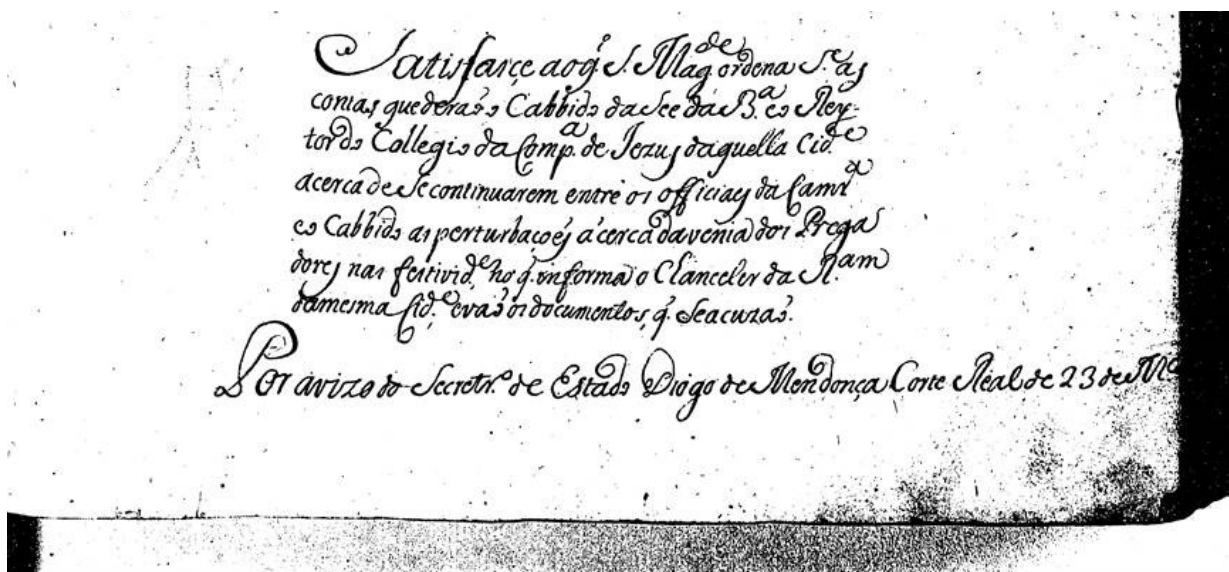 Satisfasçe ao q̃. S. Mag.de ordena s.e as
contas que derão o Cabbido da See da B.a e o Rey-
tor do Collegio da Comp.a de Jezus daquella Cid.e
acerca de se continuarem entre os officiaes da Camr.a
e o Cabbido as perturbaçoẽs ácerca da venia dos Prega
dores nas festivid.e no q̃. informa o Chanceler da R.am
da mesma Cid.e e vão os documentos, q̃. se acuzão.
Por avizo do Secretr.o de Estado Diogo de Mendonça Corte Real de 23 de